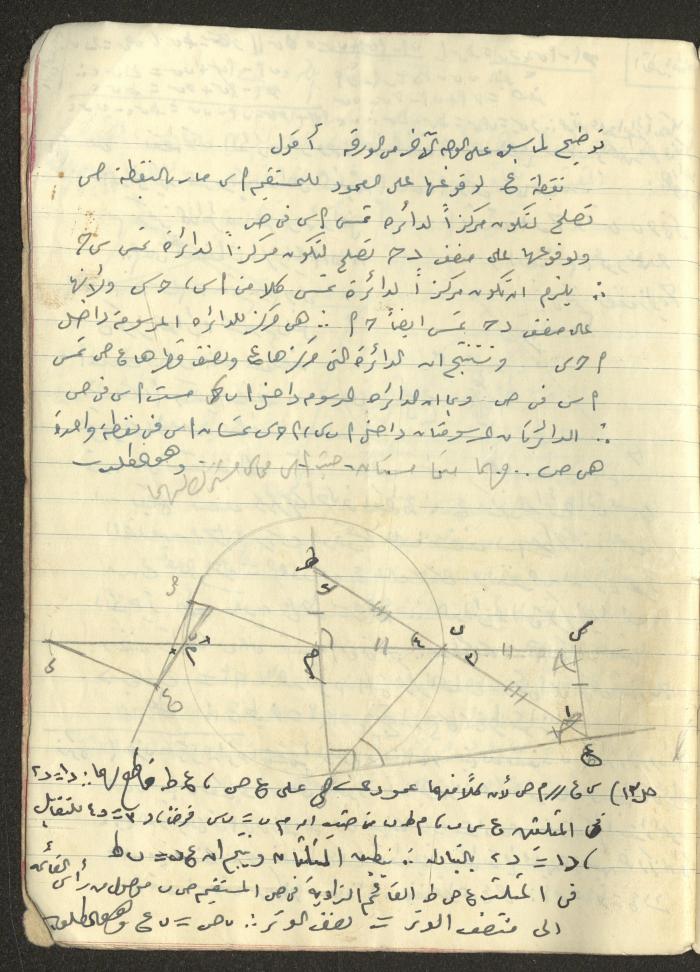 توضيح لما سبق على الوجه الآخر من الورقة أقول
نقطة ع لوقوعها على العمود للمستقيم ا س مار بالنقطة ص
تصلح لتكون مركزاً لدائرة تمس ا س فى ص
ولوقوعها على منصف د ح تصلح لتكون مركزاً لدائرة تمس س ح
∴ يلزم ان تكون مركزاً لدائرة تمس كلا من ا س ، ح س ولأنها
على منصف د ح تمس ايضاً ح ا ∴ هى مركز للدائرة المرسومة داخل
ا ح س ونستنتج ان الدائرة التى مركزها ع ونصف قطرها ع ص تمس
ا س فى ص وبما ان الدائرة المرسومة داخل ا ب س مست ا س فى ص
∴ الدائرتان المرسومتان داخل ا ب س ، ا ح س تمسان ا س فى نقطة واحدة
هى ص .. فهما متماستان وهو المطلوب
ط
ص
م
ن
س
ع
٢
٤
٣
١
حل ١٣) س ع // م ص لأن كلا منهما عمود على ع ص ، ع ط قاطع لهما ∴ د١ = د٢
فى المثلثين ع س ن ، م ط ن من حيث ان م ن = ن س فرضا ، د٣ = د٤ للتقابل
، د١ = د٢ بالتبادل ∴ ينطبق المثلثان وينتج ان ع ن = ن ط
فى المثلث ع ص ط القائم الزاوية فى ص المستقيم ص ن موصول من رأس القائمة
الى منتصف الوتر = نصف الوتر ∴ ن ص = ن ع وهو المطلوب